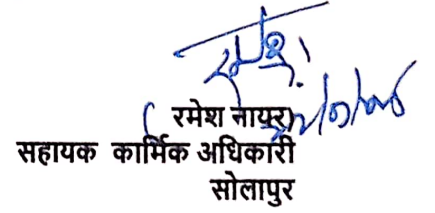 (रमेश नायर)
सहायक कार्मिक अधिकारी
सोलापुर